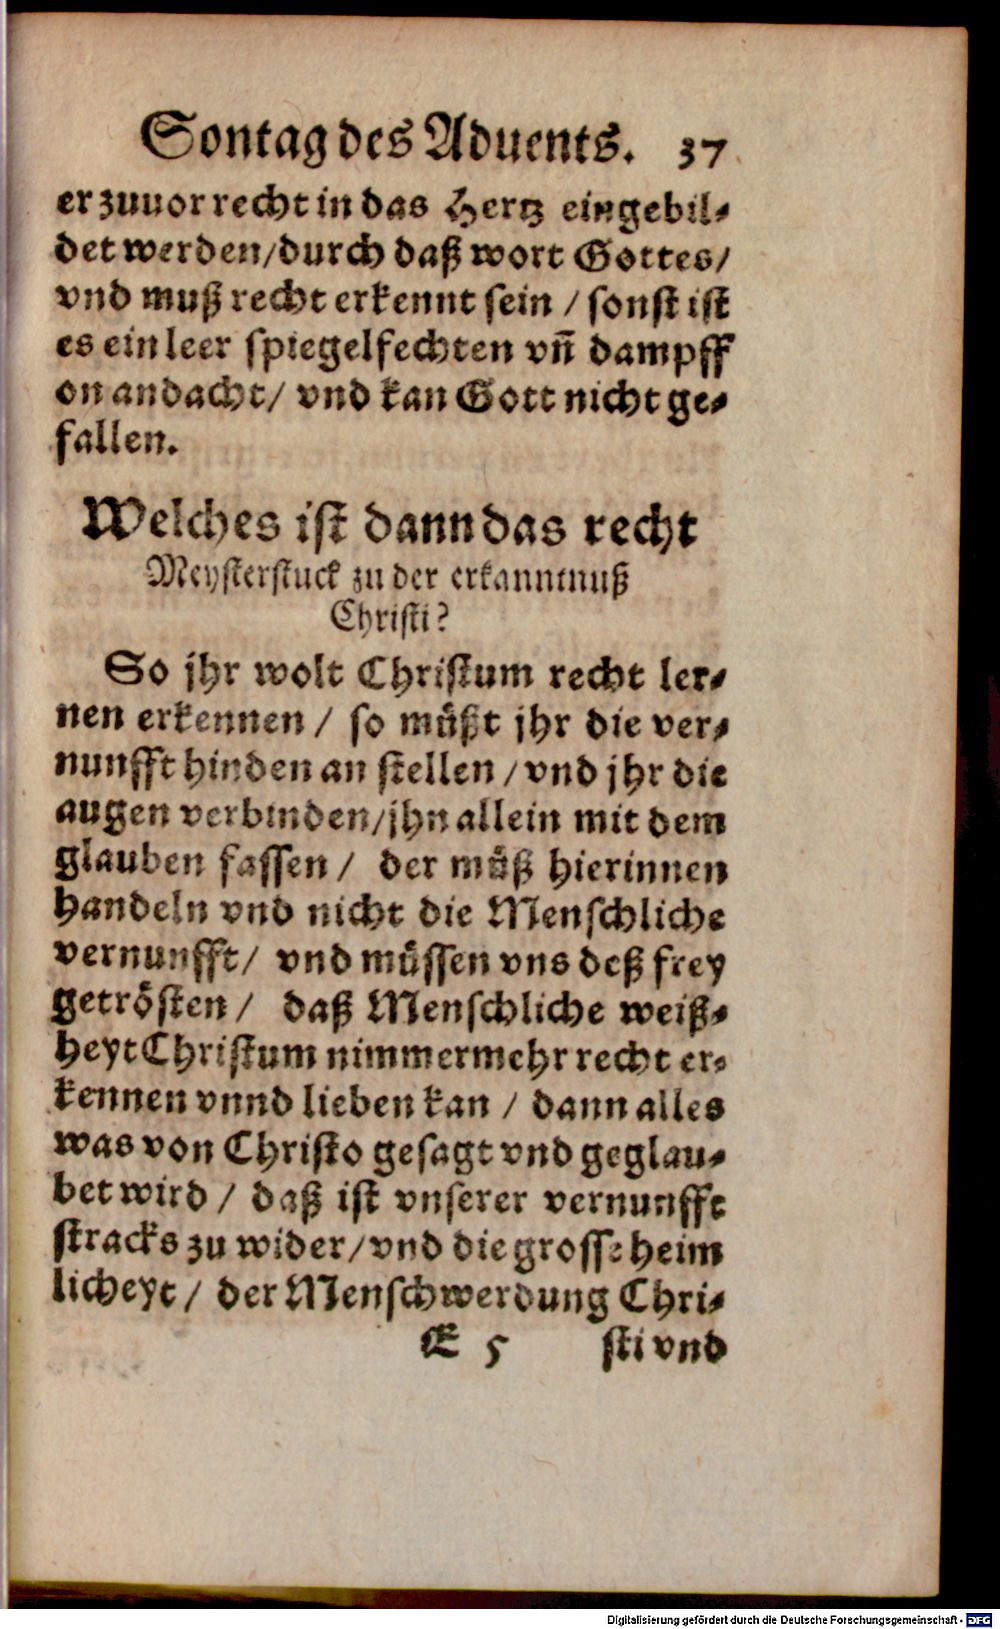 Sontag des Aduents. 37
er zuuor recht in das Hertz eingebil-
det werden/durch daß wort Gottes/
vnd muß recht erkennt sein / sonst ist
es ein leer spiegelfechten vñ dampff
on andacht/ vnd kan Gott nicht ge-
fallen.
Welches ist dann das recht
Meysterstuck zu der erkanntnuß
Christi?
So jhr wolt Christum recht ler-
nen erkennen / so müßt jhr die ver-
nunfft hinden an stellen / vnd jhr die
augen verbinden/jhn allein mit dem
glauben fassen / der můß hierinnen
handeln vnd nicht die Menschliche
vernunfft/ vnd müssen vns deß frey
getrösten / daß Menschliche weiß-
heyt Christum nimmermehr recht er-
kennen vnnd lieben kan / dann alles
was von Christo gesagt vnd geglau-
bet wird / daß ist vnserer vernunfft
stracks zu wider/vnd die grosse heim
licheyt / der Menschwerdung Chri-
E 5 sti vnd
Digitalisierung gefördert durch die Deutsche Forschungsgemeinschaft - DFG